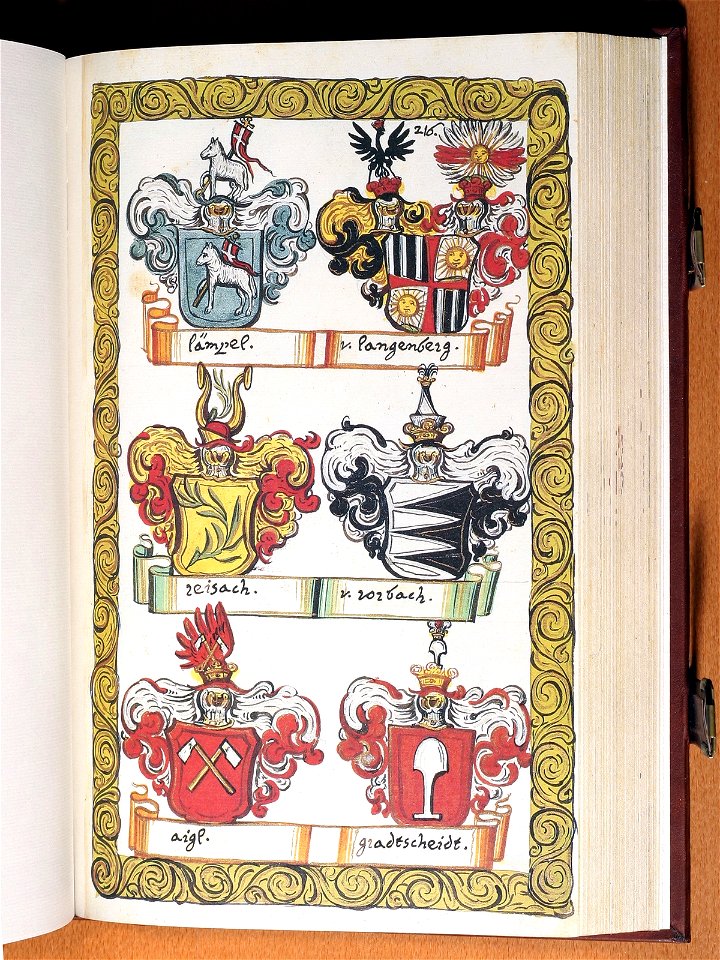 216.
lämpel.
v. langenberg.
reisach.
v. rorbach.
aigl.
gradtscheidt.